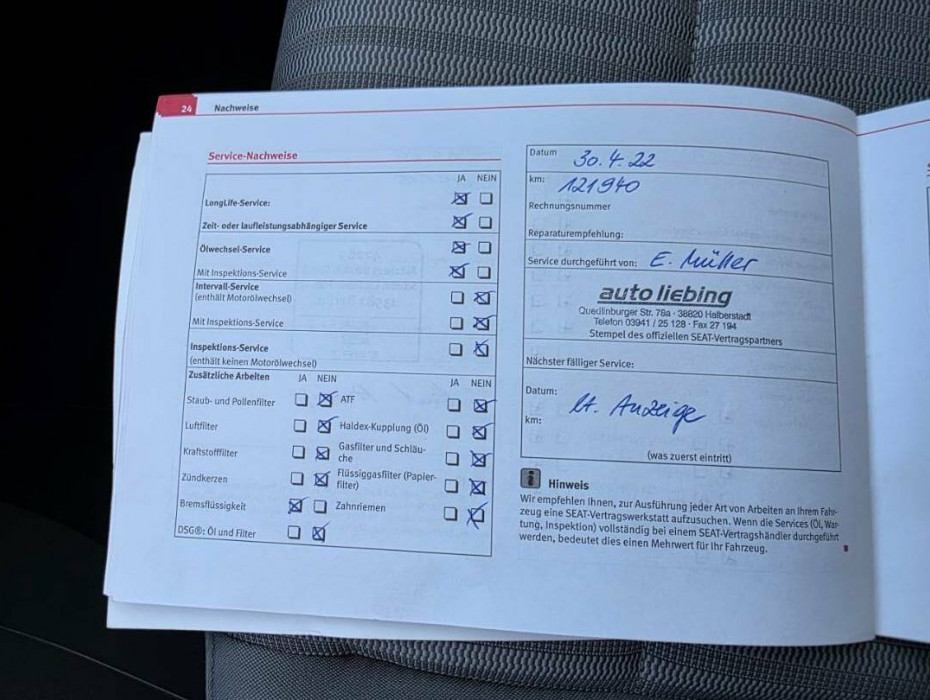 24 Nachweise
Service-Nachweise
JA NEIN
LongLife-Service:
Zeit- oder laufleistungsabhängiger Service
Ölwechsel-Service
Mit Inspektions-Service
Intervall-Service
(enthält Motorölwechsel)
Mit Inspektions-Service
Inspektions-Service
(enthält keinen Motorölwechsel)
Zusätzliche Arbeiten JA NEIN JA NEIN
Staub- und Pollenfilter ATF
Luftfilter Haldex-Kupplung (Öl)
Kraftstofffilter Gasfilter und Schläu-
che
Zündkerzen Flüssiggasfilter (Papier-
filter)
Bremsflüssigkeit Zahnriemen
DSG®: Öl und Filter
Datum 30.4.22
km: 121940
Rechnungsnummer
Reparaturempfehlung:
Service durchgeführt von: E. Müller
auto liebing
Quedlinburger Str. 78a · 38820 Halberstadt
Telefon 03941 / 25 128 · Fax 27 194
Stempel des offiziellen SEAT-Vertragspartners
Nächster fälliger Service:
Datum:
lt. Anzeige
km:
(was zuerst eintritt)
i Hinweis
Wir empfehlen Ihnen, zur Ausführung jeder Art von Arbeiten an Ihrem Fahr-
zeug eine SEAT-Vertragswerkstatt aufzusuchen. Wenn die Services (Öl, War-
tung, Inspektion) vollständig bei einem SEAT-Vertragshändler durchgeführt
werden, bedeutet dies einen Mehrwert für Ihr Fahrzeug.